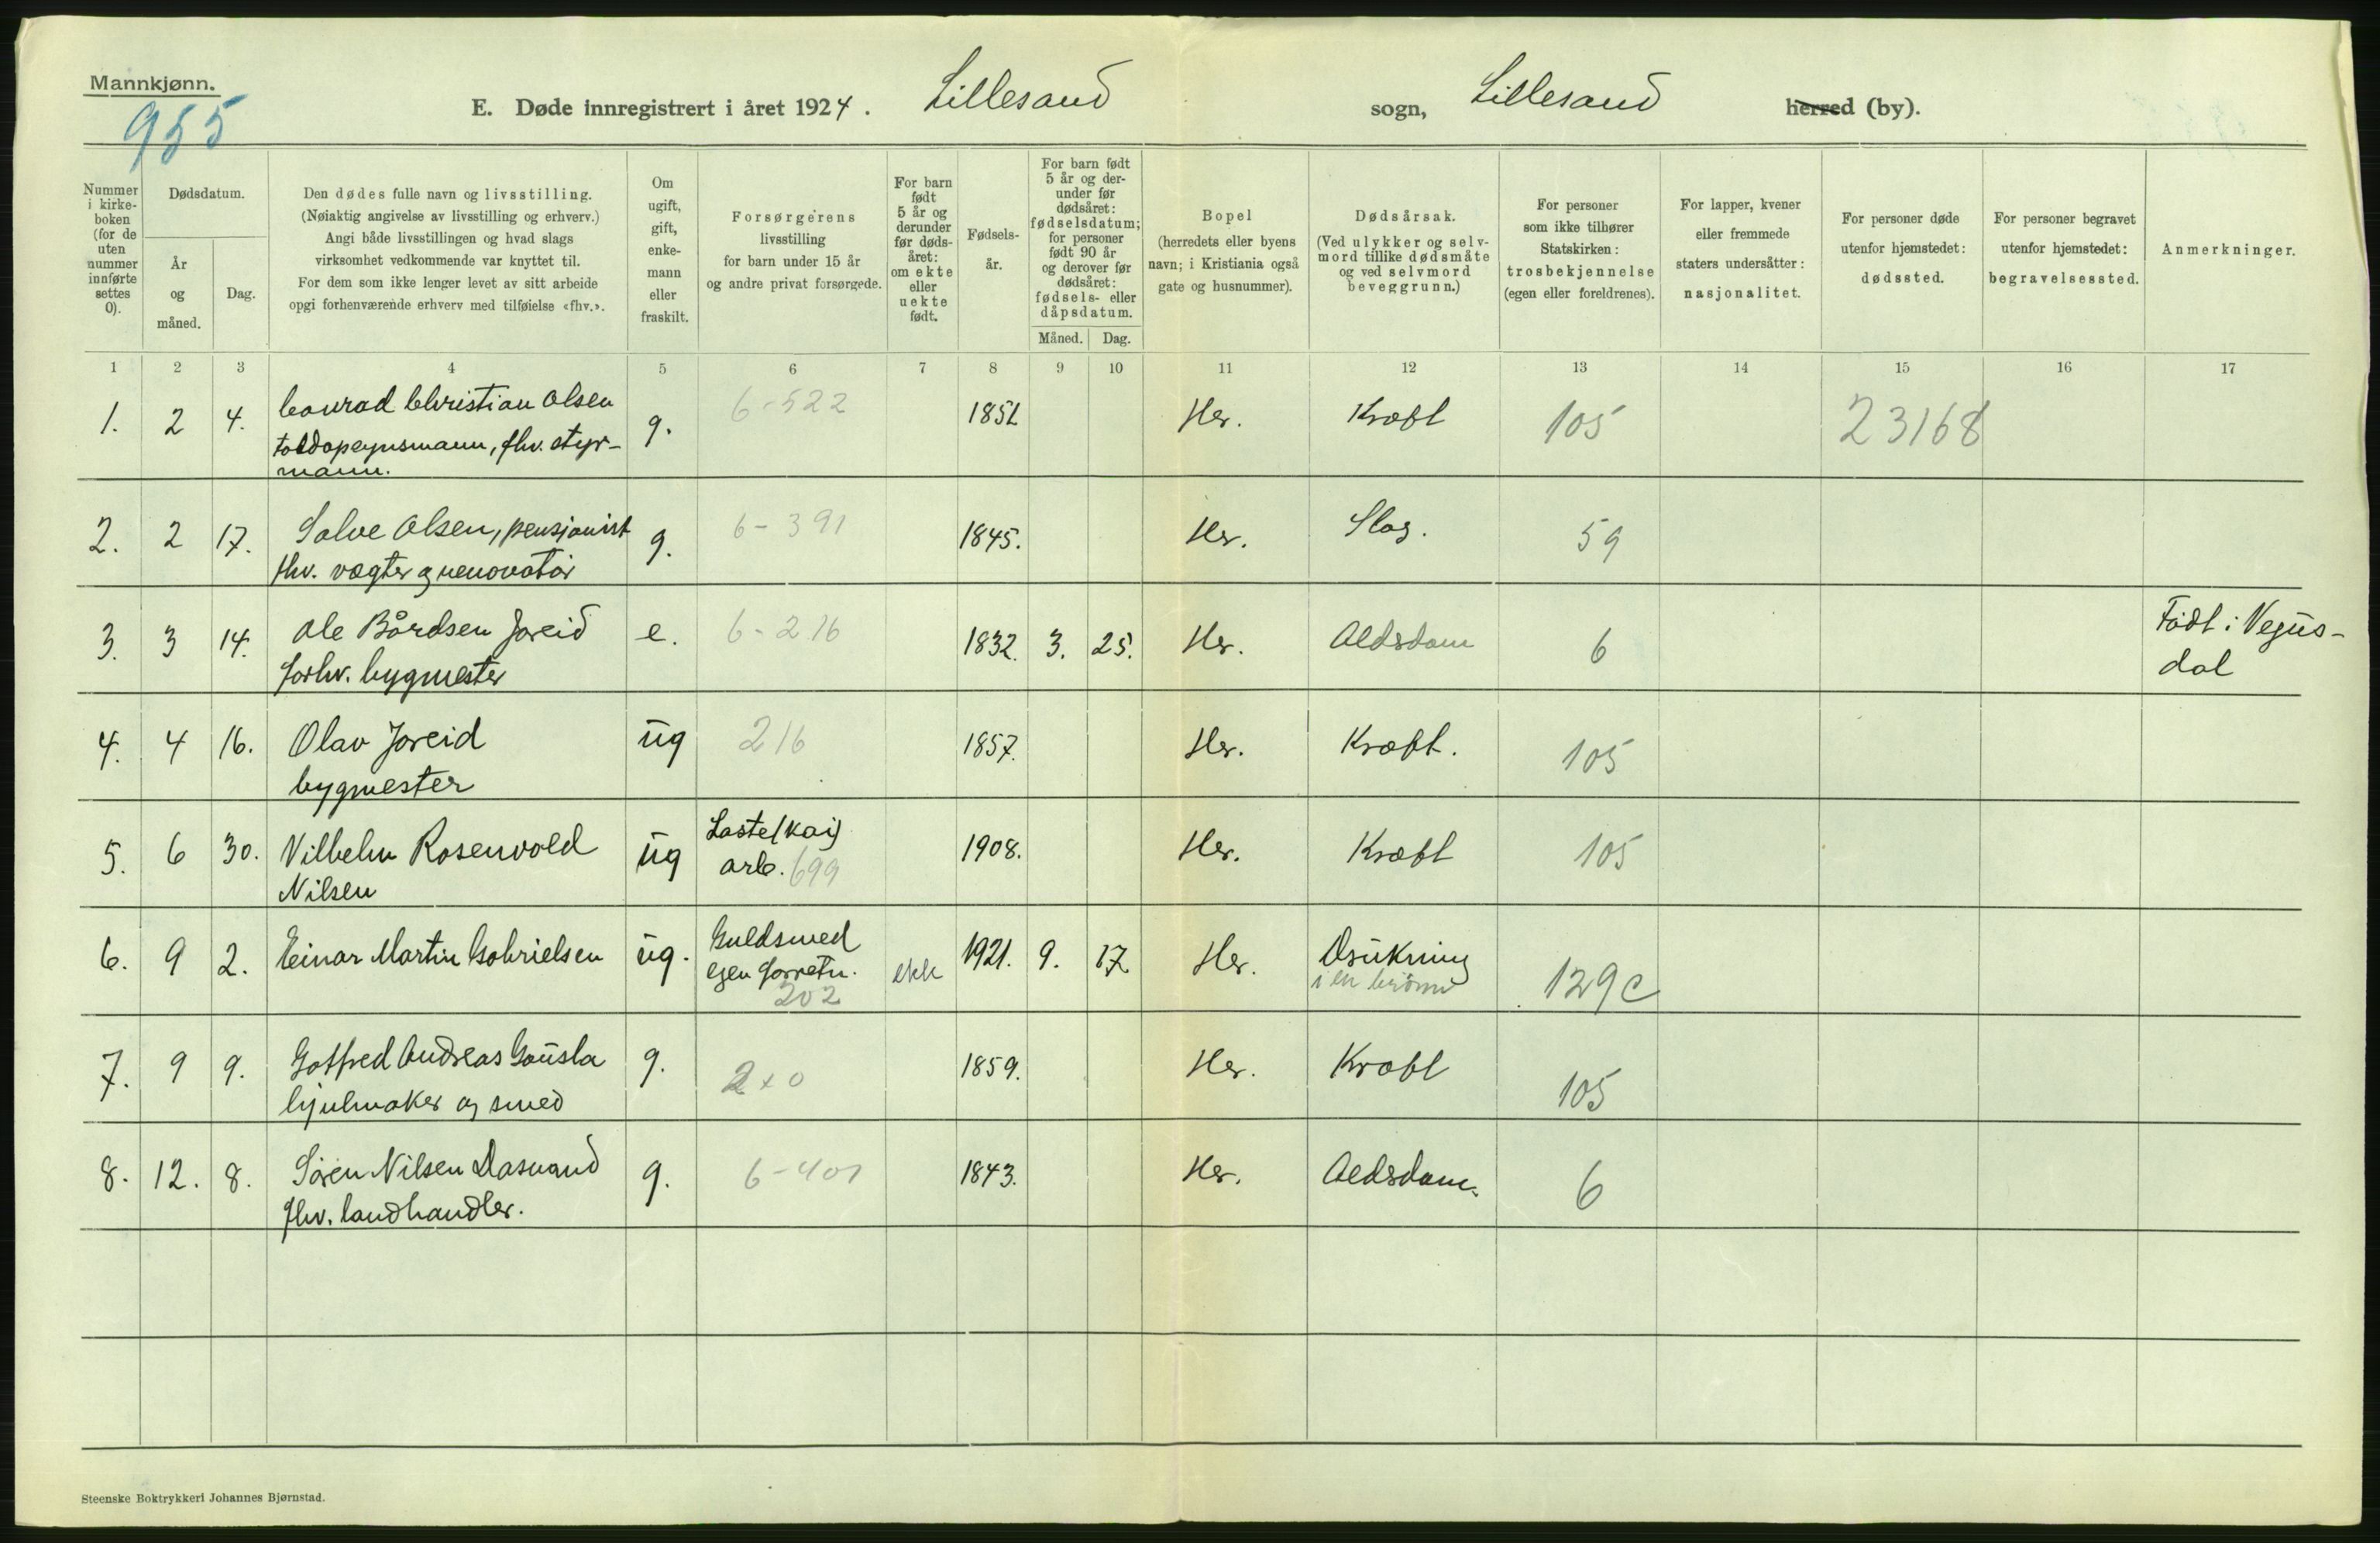 Mannkjønn.
955
E. Døde innregistrert i året 1924. Lillesand sogn, Lillesand herred (by).
Nummer i kirkeboken (for de uten nummer innførte settes 0).
Dødsdatum.
År og måned.
Dag.
Den dødes fulle navn og livsstilling.
(Nøiaktig angivelse av livsstilling og erhverv.)
Angi både livsstillingen og hvad slags
virksomhet vedkommende var knyttet til.
For dem som ikke lenger levet av sitt arbeide
opgi forhenværende erhverv med tilføielse «fhv.».
Om ugift, gift, enkemann eller fraskilt.
Forsørgerens
livsstilling
for barn under 15 år
og andre privat forsørgede.
For barn født 5 år og derunder før dødsåret: om ekte eller uekte født.
Fødselsår.
For barn født 5 år og derunder før dødsåret: fødselsdatum; for personer født 90 år og derover før dødsåret: fødsels- eller dåpsdatum.
Måned. Dag.
Bopel
(herredets eller byens
navn; i Kristiania også
gate og husnummer).
Dødsårsak.
(Ved ulykker og selvmord tillike dødsmåte og ved selvmord beveggrunn.)
For personer
som ikke tilhører
Statskirken:
trosbekjennelse
(egen eller foreldrenes).
For lapper, kvener
eller fremmede
staters undersåtter:
nasjonalitet.
For personer døde
utenfor hjemstedet:
dødssted.
For personer begravet
utenfor hjemstedet:
begravelsessted.
Anmerkninger.
1 2 3 4 5 6 7 8 9 10 11 12 13 14 15 16 17
1. 2 4. Conrad Christian Olsen g. 6-522 1851 Her. Kræft 105 23168
toldopsynsmann, fhv. styr-
mann.
2. 2 17. Salve Olsen, pensjonist g. 6-391 1845. Her. Slag. 59
fhv. vægter og renovatør
3. 3 14. Ole Bårdsen Joreid e. 6-216 1832. 3. 25. Her. Aldsdom 6 Født i Vegus-
forhv. bygmester dal
4. 4 16. Olav Joreid ug 216 1857. Her. Kræft. 105
bygmester
5. 6 30. Vilhelm Rosenvold ug Laste(kai) 1908. Her. Kræft 105
Nilsen arb. 699
6. 9 2. Einar Martin Gabrielsen ug. Guldsmed ekte 1921. 9. 17. Her. Drukning 129c
egen forretn. i en brønn
202
7. 9 9. Gotfred Andreas g. 2x0 1859. Her. Kræft 105
hjulmaker og smed
8. 12. 8. Søren Nilsen Dasvand g. 6-401 1843. Her. Aldsdom. 6
fhv. landhandler.
Steenske Boktrykkeri Johannes Bjørnstad.